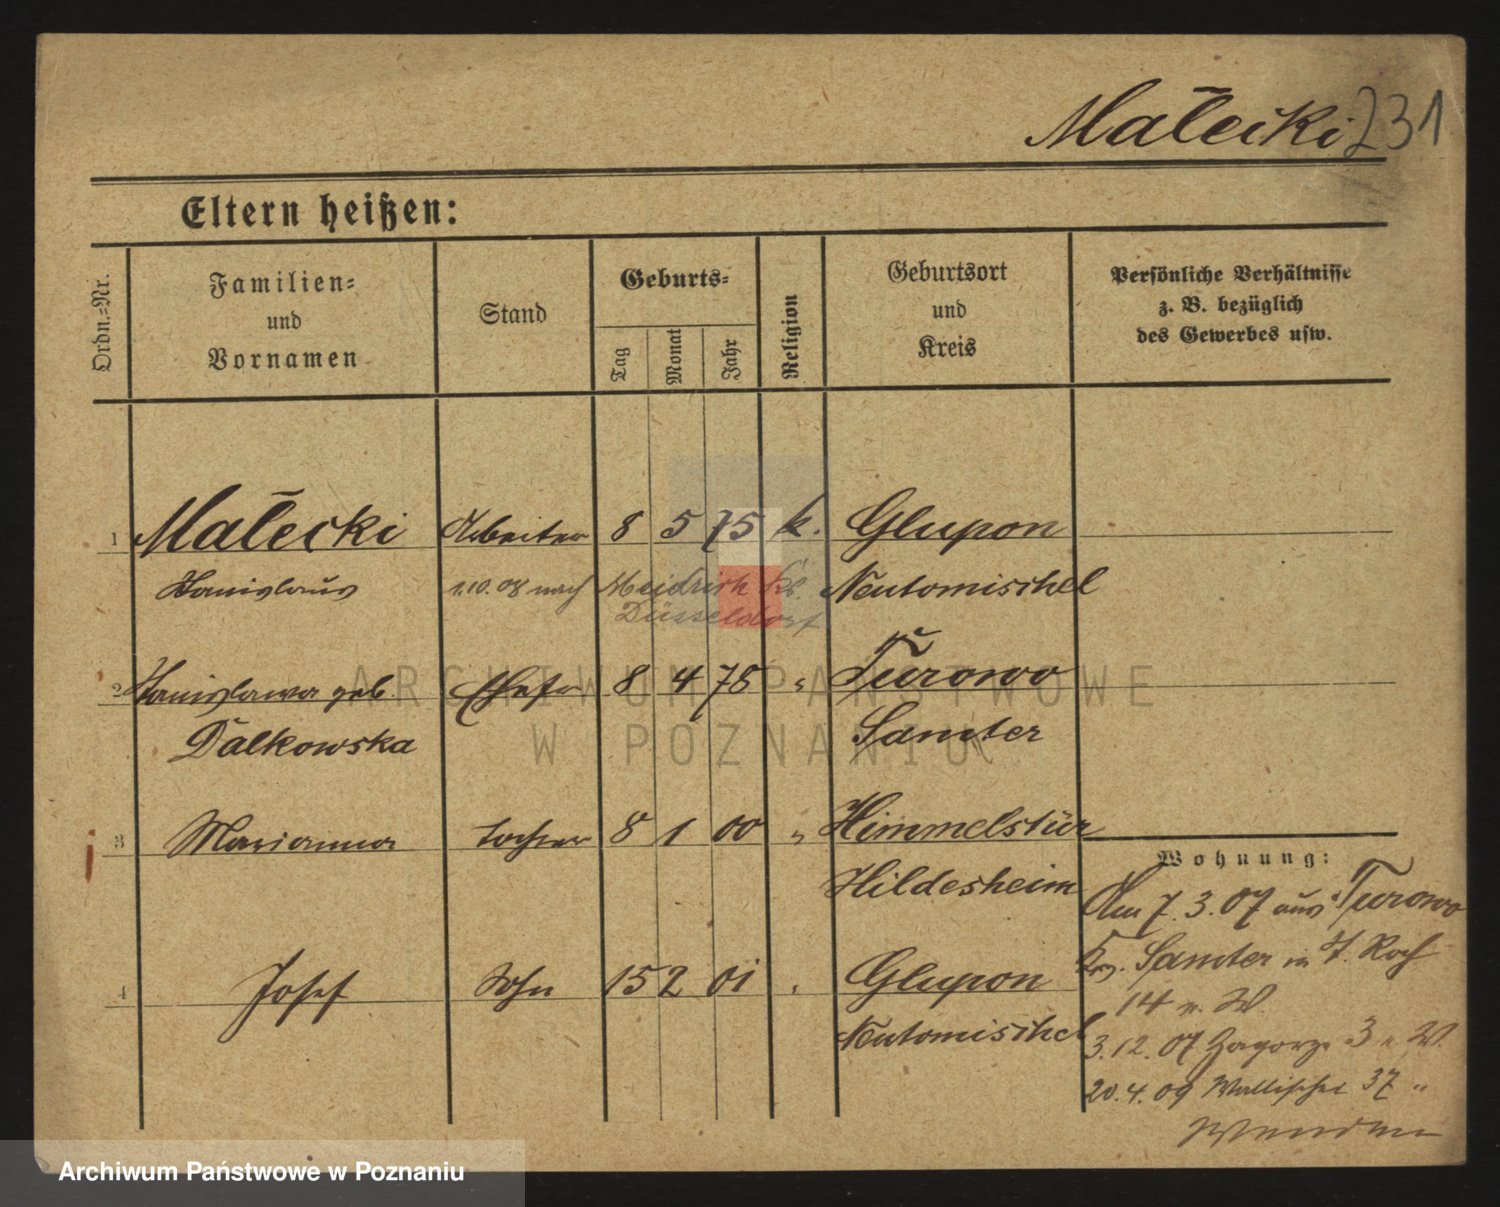 Małecki 231
Eltern heißen:
Ordn.-Nr.
Familien- und Vornamen
Stand
Geburts-
Tag
Monat
Jahr
Religion
Geburtsort und Kreis
Persönliche Verhältnisse z. B. bezüglich des Gewerbes usw.
1 Małecki Arbeiter 8 5 75 k. Glupon
Stanislaus 1.10.08 nach Meidrich Kr. Neutomischel
Düsseldorf
2 Stanislawa geb. Ehefr 8 4 78 " Turowo
Dalkowska Samter
3 Marianna Tochter 8 1 00 " Himmelstür
Hildesheim
4 Josef Sohn 15 2 01 " Glupon
Neutomischel
Wohnung:
Am 7.3.07 aus Turowo
Krs. Samter in St. Roch
14 n. W.
3.12.07 Zagorze 3 n. W.
20.4.09 Wallischei 37 "
Wenden
ARCHIWUM PAŃSTWOWE
W POZNANIU
Archiwum Państwowe w Poznaniu